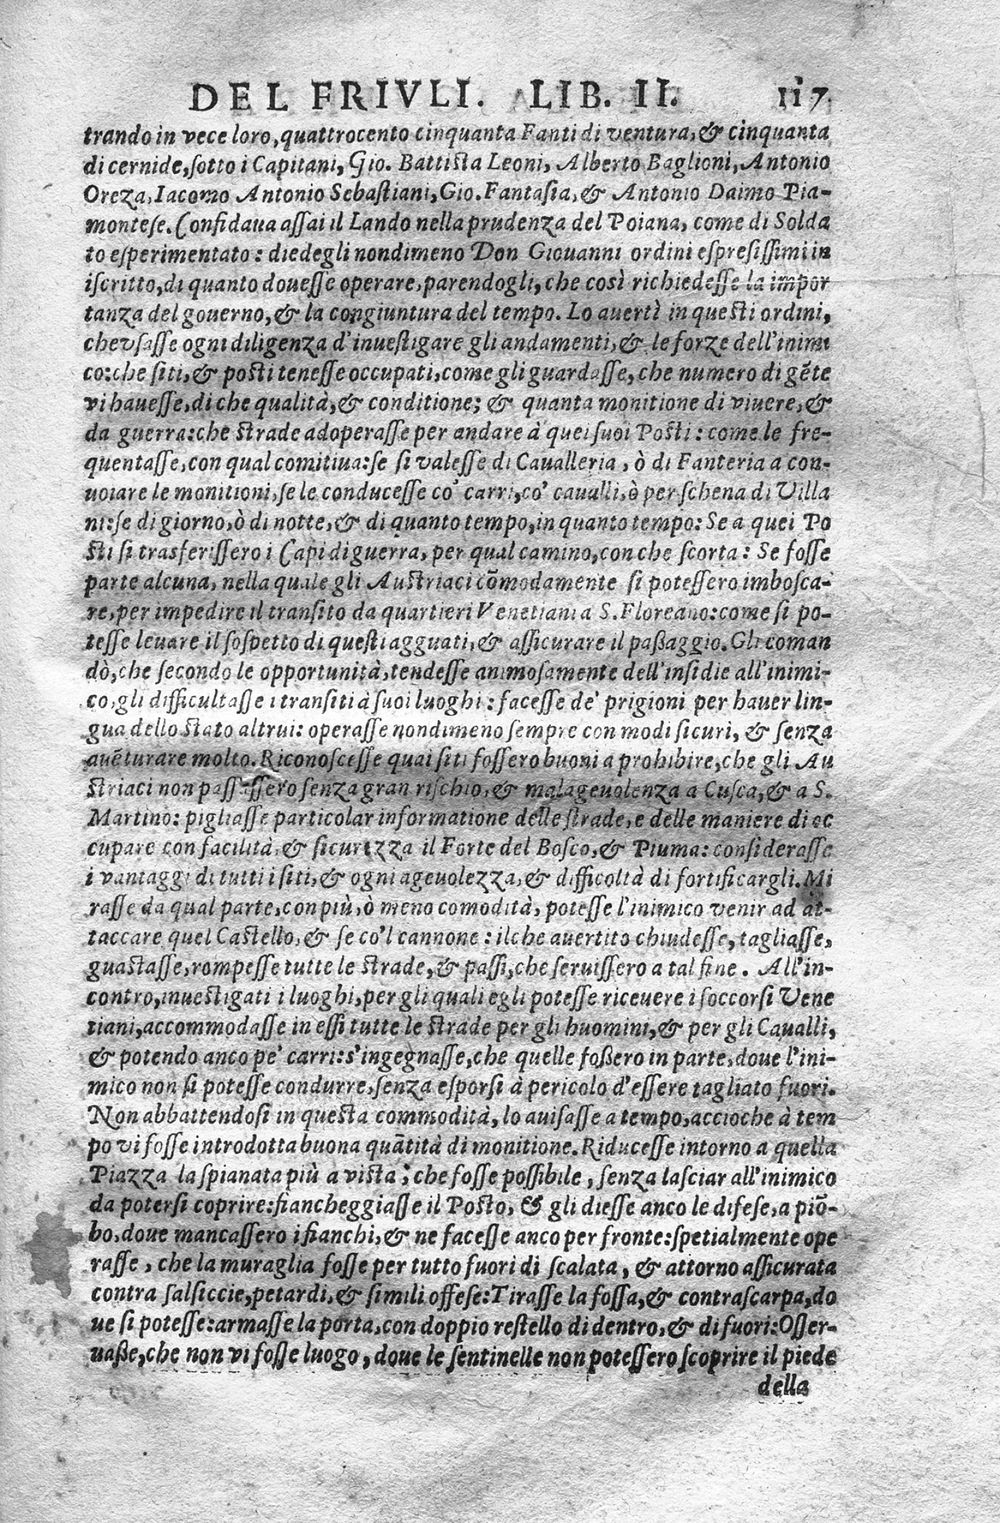 DEL FRIVLI. LIB. II. 117
trando in vece loro, quattrocento cinquanta Fanti di ventura, & cinquanta
di cernide, sotto i Capitani, Gio. Battista Leoni, Alberto Baglioni, Antonio
Oreza, Iacomo Antonio Sebastiani, Gio. Fantasia, & Antonio Daimo Pia-
montese. Confidaua assai il Lando nella prudenza del Poiana, come di Solda
to esperimentato: diedegli nondimeno Don Giouanni ordini espresissimi in
iscritto, di quanto douesse operare, parendogli, che così richiedesse la impor
tanza del gouerno, & la congiuntura del tempo. Lo auertì in questi ordini,
che vsasse ogni diligenza d'inuestigare gli andamenti, & le forze dell'inimi
co: che siti, & posti tenesse occupati, come gli guardasse, che numero di gẽte
vi hauesse, di che qualità, & conditione; & quanta monitione di viuere, &
da guerra: che strade adoperasse per andare à quei suoi Posti: come le fre-
quentasse, con qual comitiua: se si valesse di Caualleria, ò di Fanteria a con-
uoiare le monitioni, se le conducesse co' carri, co' caualli, ò per schena di Villa
ni: se di giorno, ò di notte, & di quanto tempo, in quanto tempo: Se a quei Po
sti si trasferissero i Capi di guerra, per qual camino, con che scorta: Se fosse
parte alcuna, nella quale gli Austriaci cõmodamente si potessero imbosca-
re, per impedire il transito da quartieri Venetiani a S. Floreano: come si po-
tesse leuare il sospetto di questi agguati, & assicurare il passaggio. Gli coman
dò, che secondo le opportunità, tendesse animosamente dell'insidie all'inimi-
co, gli difficultasse i transiti à suoi luoghi: facesse de' prigioni per hauer lin-
gua dello stato altrui: operasse nondimeno sempre con modi sicuri, & senza
auẽturare molto. Riconoscesse quai siti fossero buoni a prohibire, che gli Au
striaci non passassero senza gran rischio, & malageuolenza a Cusca, & a S.
Martino: pigliasse particolar informatione delle strade, e delle maniere di oc
cupare con facilità, & sicurezza il Forte del Bosco, & Piuma: considerasse
i vantaggi di tutti i siti, & ogni ageuolezza, & difficoltà di fortificargli. Mi
rasse da qual parte, con più, ò meno comodità, potesse l'inimico venir ad at-
taccare quel Castello, & se co'l cannone: il che auertito chiudesse, tagliasse,
guastasse, rompesse tutte le strade, & passi, che seruissero a tal fine. All'in-
contro, inuestigati i luoghi, per gli quali egli potesse riceuere i soccorsi Vene
tiani, accommodasse in essi tutte le strade per gli huomini, & per gli Caualli,
& potendo anco pe' carri: s'ingegnasse, che quelle fossero in parte, doue l'ini-
mico non si potesse condurre, senza esporsi à pericolo d'essere tagliato fuori.
Non abbattendosi in questa commodità, lo auisasse a tempo, accioche à tem
po vi fosse introdotta buona quãtità di monitione. Riducesse intorno a quella
Piazza la spianata più a vista, che fosse possibile, senza lasciar all'inimico
da potersi coprire: fiancheggiasse il Posto, & gli diesse anco le difese, a piõ-
bo, doue mancassero i fianchi, & ne facesse anco per fronte: spetialmente ope
rasse, che la muraglia fosse per tutto fuori di scalata, & attorno assicurata
contra salsiccie, petardi, & simili offese: Tirasse la fossa, & contrascarpa, do
ue si potesse: armasse la porta, con doppio restello di dentro, & di fuori: Osser-
uasse, che non vi fosse luogo, doue le sentinelle non potessero scoprire il piede
della